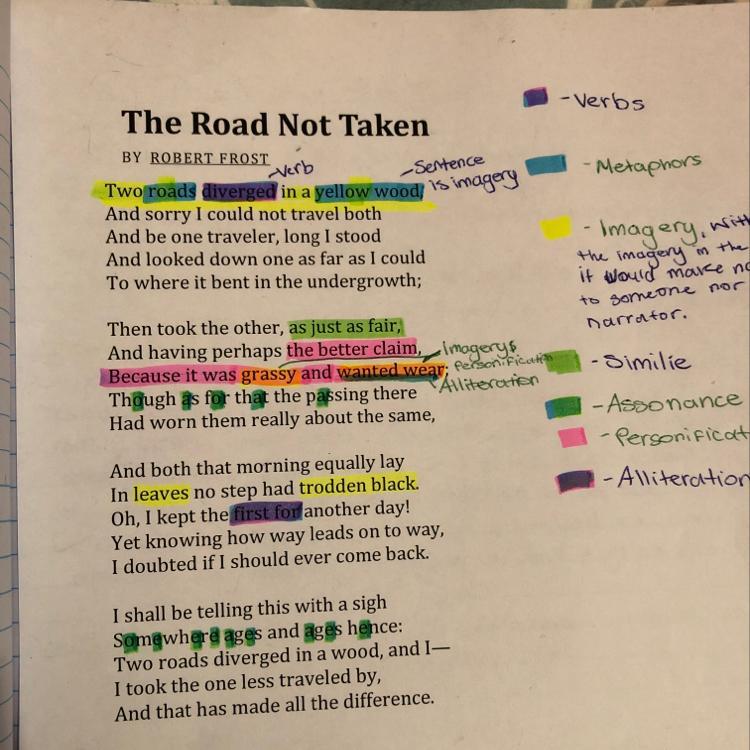 The Road Not Taken
BY ROBERT FROST
Verb
Sentence
is imagery
Two roads diverged in a yellow wood,
And sorry I could not travel both
And be one traveler, long I stood
And looked down one as far as I could
To where it bent in the undergrowth;
Then took the other, as just as fair,
And having perhaps the better claim,
Because it was grassy and wanted wear;
Though as for that the passing there
Had worn them really about the same,
Imagery &
Personification
Alliteration
And both that morning equally lay
In leaves no step had trodden black.
Oh, I kept the first for another day!
Yet knowing how way leads on to way,
I doubted if I should ever come back.
I shall be telling this with a sigh
Somewhere ages and ages hence:
Two roads diverged in a wood, and I—
I took the one less traveled by,
And that has made all the difference.
- Verbs
- Metaphors
- Imagery, with
the imagery in the
it would make no
to someone nor
narrator.
- Similie
- Assonance
- Personificat
- Alliteration